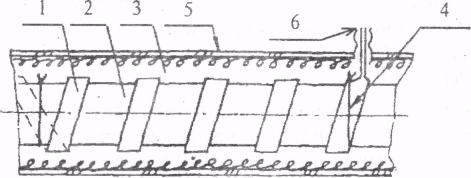 1 2 3 5 6 4